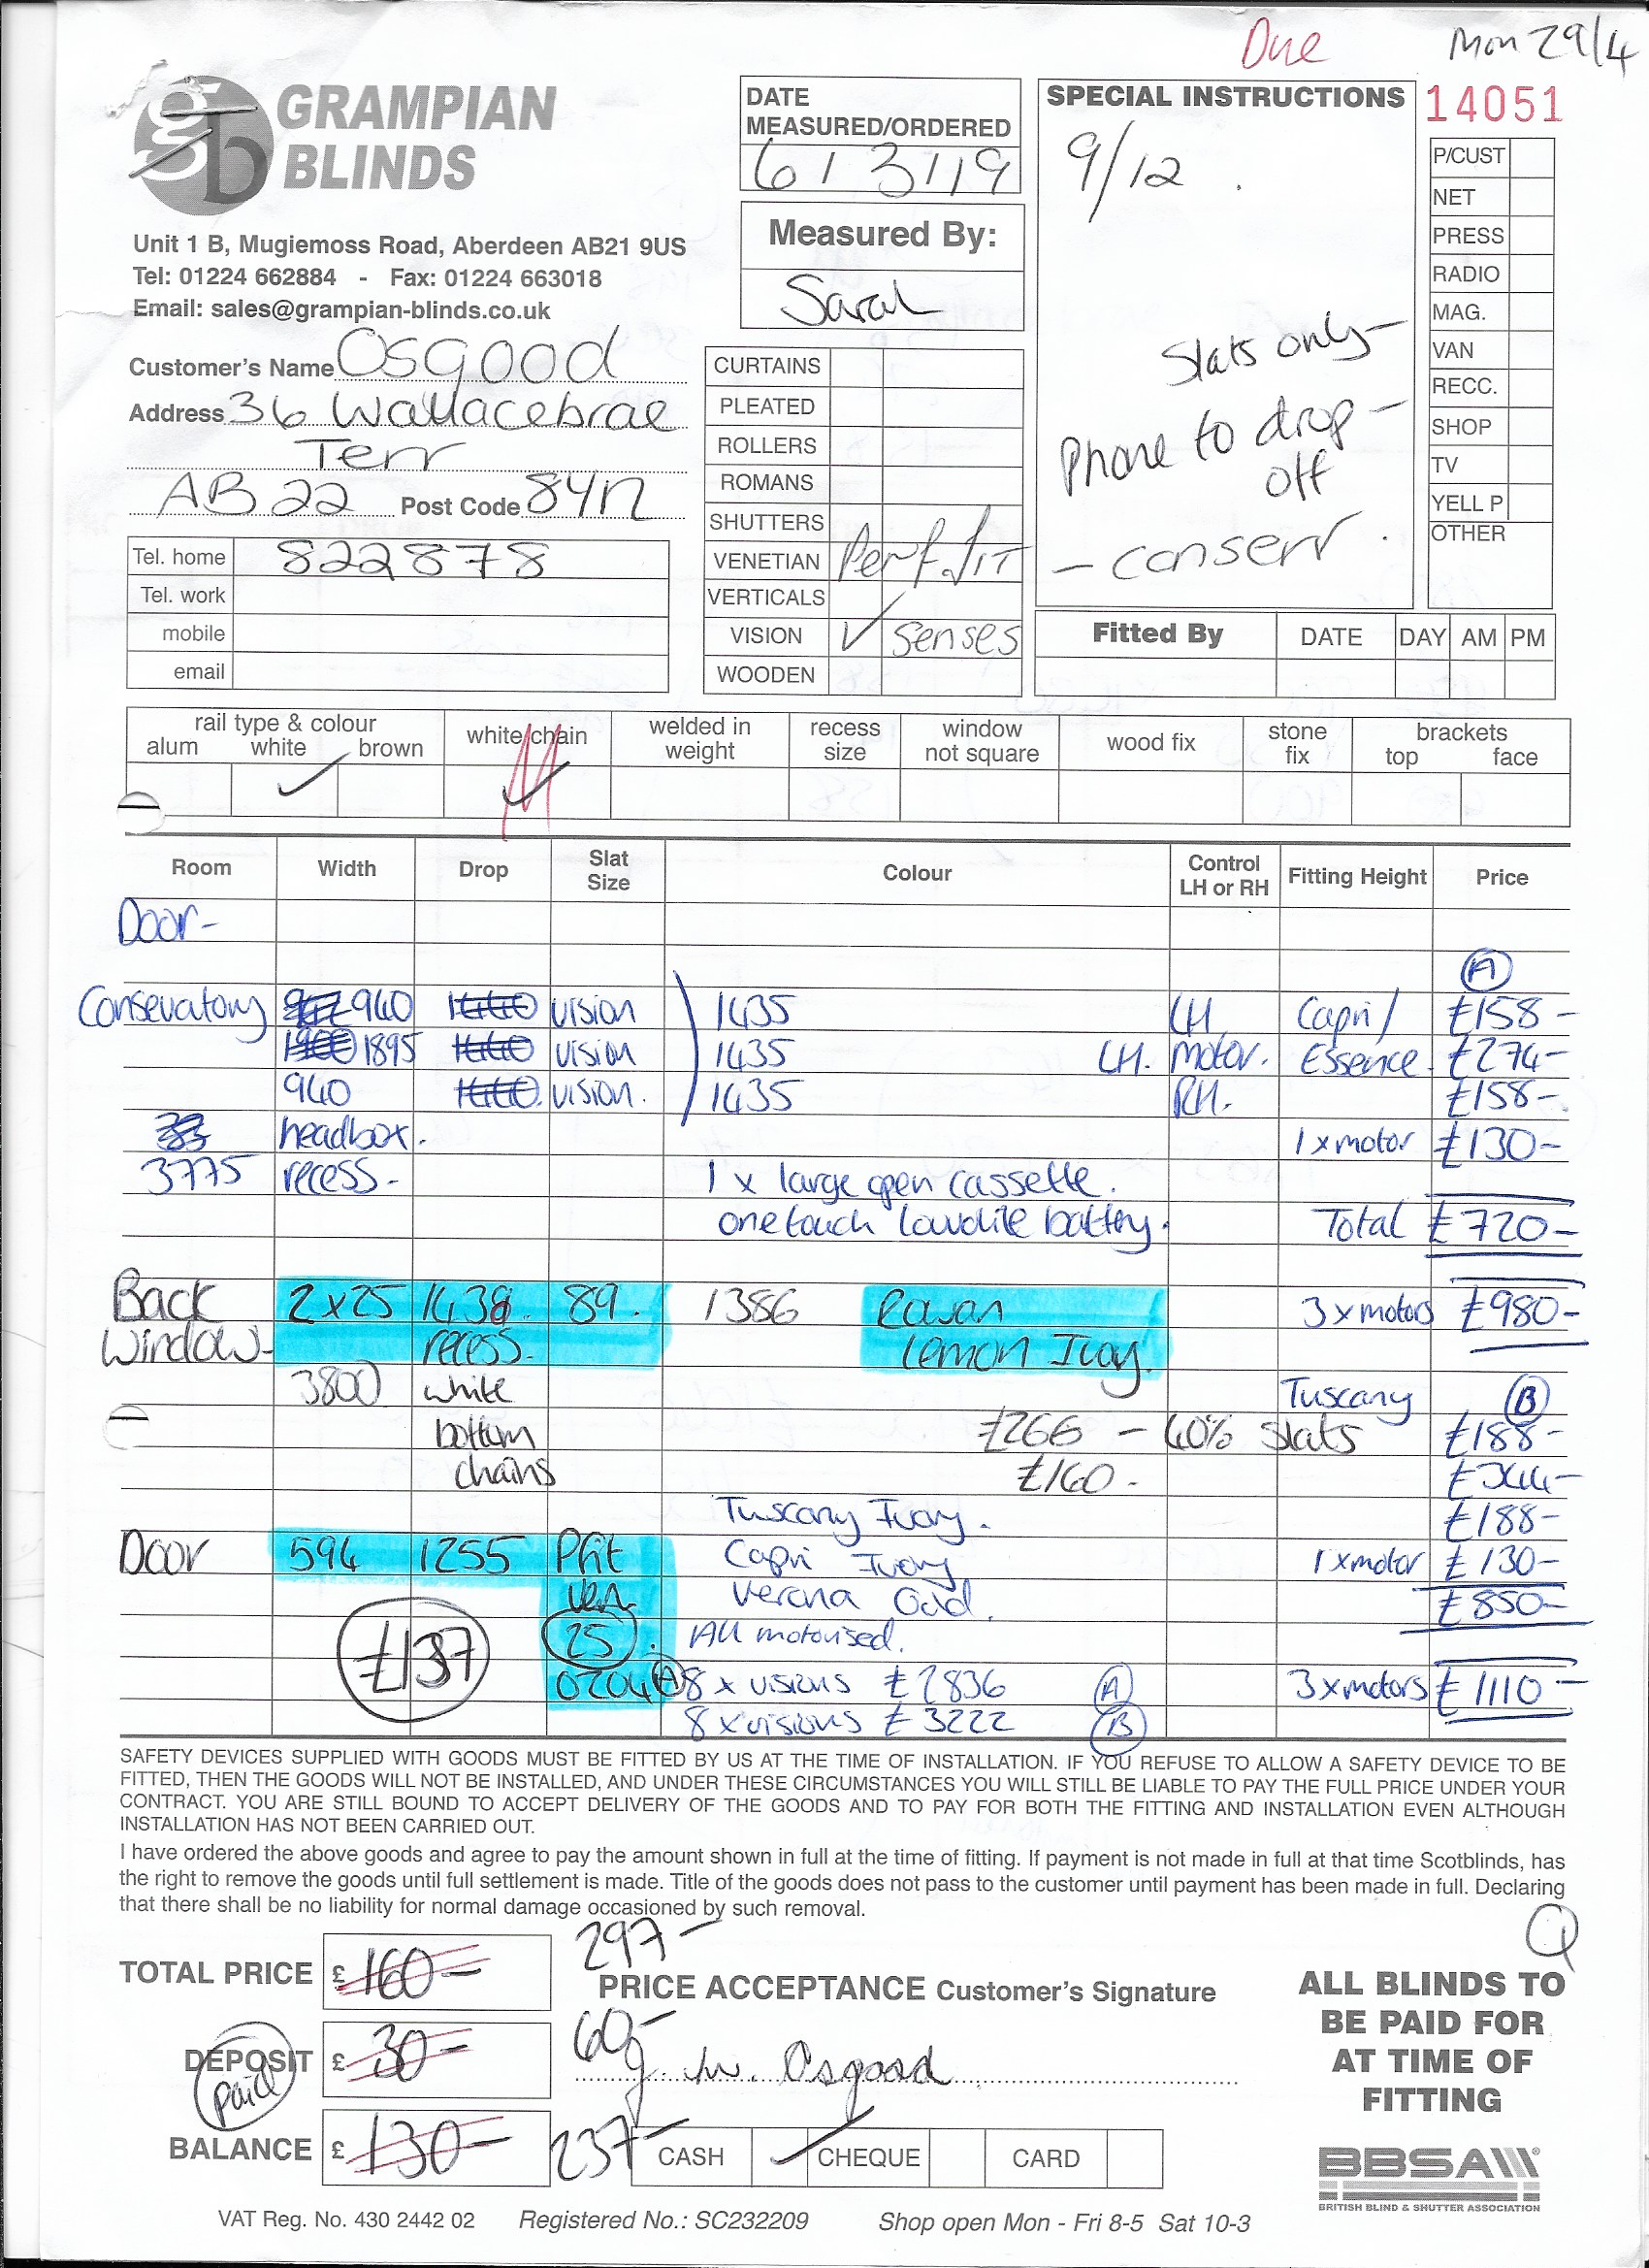 Due Mon 29/4
GRAMPIAN
BLINDS
Unit 1 B, Mugiemoss Road, Aberdeen AB21 9US
Tel: 01224 662884 - Fax: 01224 663018
Email: sales@grampian-blinds.co.uk
Customer's Name Osgood
Address 36 Wallacebrae
Terr
AB22 Post Code 8YN
Tel. home 822878
Tel. work
mobile
email
DATE
MEASURED/ORDERED
6/3/19
Measured By:
Sarah
CURTAINS
PLEATED
ROLLERS
ROMANS
SHUTTERS
VENETIAN Perf.fit
VERTICALS
VISION ✓ senses
WOODEN
SPECIAL INSTRUCTIONS
9/12
Slats only -
Phone to drop -
off
- conserv.
14051
P/CUST
NET
PRESS
RADIO
MAG.
VAN
RECC.
SHOP
TV
YELL P
OTHER
Fitted By DATE DAY AM PM
rail type & colour
alum white brown
white/chain
welded in
weight
recess
size
window
not square
wood fix
stone
fix
brackets
top face
Room Width Drop Slat Size Colour Control LH or RH Fitting Height Price
Door-
A
Consevatory 940 1440 vision 1435 LH Capri/ £158-
1900 1895 1440 vision 1435 LH. Motor. Essence £274-
940 1440 vision. 1435 RH. £158-
headbox. 1 x motor £130-
3775 recess- 1 x large open cassette.
one touch battery. Total £720-
Back 2x25 1438. 89. 1386 Rowan 3 x motors £980-
Window- recess. Lemon Ivory.
3800 white Tuscany B
bottom £266 - 40% Slats £188-
chains £160- £344-
Tuscany Ivory. £188-
Door 594 1255 Pfit Capri Ivory 1 x motor £130-
Ven Verona Gold. £850-
£137 25. All motorised.
0204 A 8 x visions £2836 A 3 x motors £1110-
8 x visions £3222 B
SAFETY DEVICES SUPPLIED WITH GOODS MUST BE FITTED BY US AT THE TIME OF INSTALLATION. IF YOU REFUSE TO ALLOW A SAFETY DEVICE TO BE
FITTED, THEN THE GOODS WILL NOT BE INSTALLED, AND UNDER THESE CIRCUMSTANCES YOU WILL STILL BE LIABLE TO PAY THE FULL PRICE UNDER YOUR
CONTRACT. YOU ARE STILL BOUND TO ACCEPT DELIVERY OF THE GOODS AND TO PAY FOR BOTH THE FITTING AND INSTALLATION EVEN ALTHOUGH
INSTALLATION HAS NOT BEEN CARRIED OUT.
I have ordered the above goods and agree to pay the amount shown in full at the time of fitting. If payment is not made in full at that time Scotblinds, has
the right to remove the goods until full settlement is made. Title of the goods does not pass to the customer until payment has been made in full. Declaring
that there shall be no liability for normal damage occasioned by such removal.
297-
TOTAL PRICE £ 160-
PRICE ACCEPTANCE Customer's Signature
60-
DEPOSIT £ 30-
paid
J. W. Osgood
BALANCE £ 130-
237-
CASH CHEQUE CARD
Q
ALL BLINDS TO
BE PAID FOR
AT TIME OF
FITTING
BBSA
BRITISH BLIND & SHUTTER ASSOCIATION
VAT Reg. No. 430 2442 02 Registered No.: SC232209 Shop open Mon - Fri 8-5 Sat 10-3